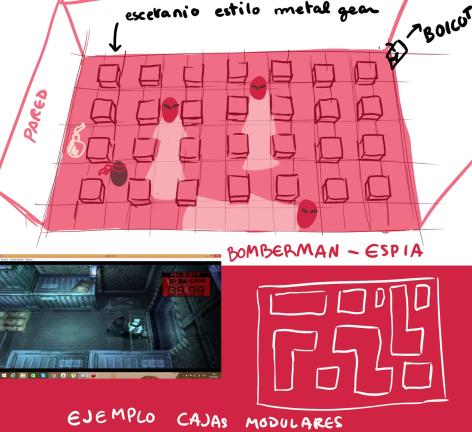 esceranio estilo metal gear
BOICOT
PARED
BOMBERMAN - ESPIA
99.99
EJEMPLO CAJAS MODULARES